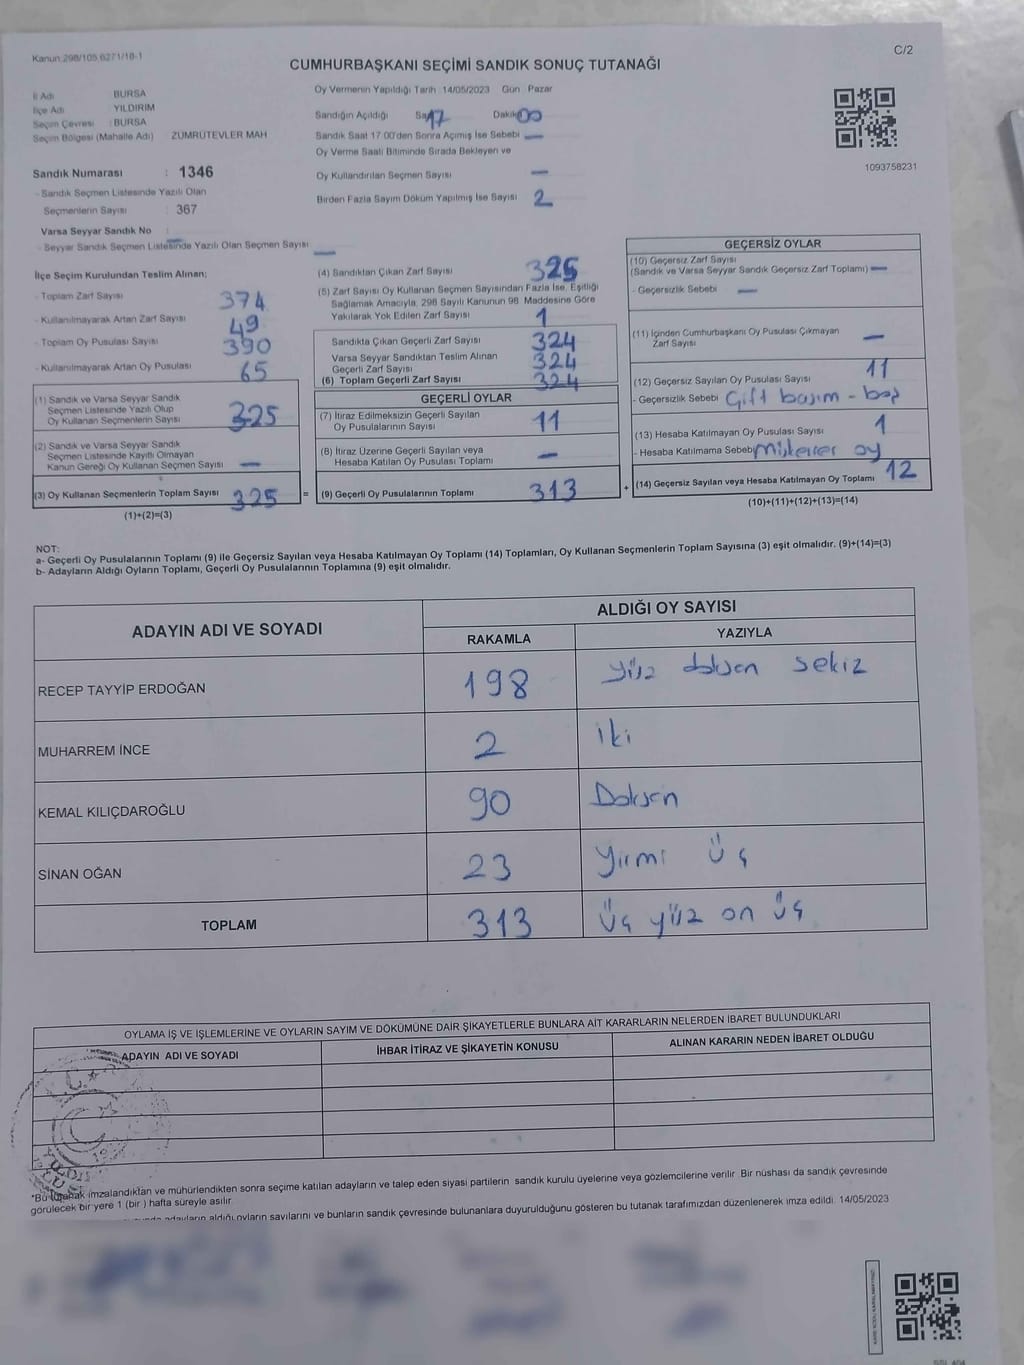 Kanun 298/105,6271/18-1
C/2
CUMHURBAŞKANI SEÇİMİ SANDIK SONUÇ TUTANAĞI
İl Adı BURSA
İlçe Adı YILDIRIM
Seçim Çevresi : BURSA
Seçim Bölgesi (Mahalle Adı) ZÜMRÜTEVLER MAH
Sandık Numarası : 1346
- Sandık Seçmen Listesinde Yazılı Olan
Seçmenlerin Sayısı : 367
Varsa Seyyar Sandık No :
- Seyyar Sandık Seçmen Listesinde Yazılı Olan Seçmen Sayısı —
Oy Vermenin Yapıldığı Tarih :14/05/2023 Gün : Pazar
Sandığın Açıldığı Saat 17 Dakika 00
Sandık Saat 17:00'den Sonra Açılmış İse Sebebi —
Oy Verme Saati Bitiminde Sırada Bekleyen ve
Oy Kullandırılan Seçmen Sayısı —
Birden Fazla Sayım Döküm Yapılmış İse Sayısı 2
1093758231
İlçe Seçim Kurulundan Teslim Alınan;
- Toplam Zarf Sayısı 374
- Kullanılmayarak Artan Zarf Sayısı 49
- Toplam Oy Pusulası Sayısı 390
- Kullanılmayarak Artan Oy Pusulası 65
(1) Sandık ve Varsa Seyyar Sandık
Seçmen Listesinde Yazılı Olup
Oy Kullanan Seçmenlerin Sayısı 325
(2) Sandık ve Varsa Seyyar Sandık
Seçmen Listesinde Kayıtlı Olmayan
Kanun Gereği Oy Kullanan Seçmen Sayısı —
(3) Oy Kullanan Seçmenlerin Toplam Sayısı 325
(1)+(2)=(3)
=
(4) Sandıktan Çıkan Zarf Sayısı 325
(5) Zarf Sayısı Oy Kullanan Seçmen Sayısından Fazla İse, Eşitliği
Sağlamak Amacıyla, 298 Sayılı Kanunun 98. Maddesine Göre
Yakılarak Yok Edilen Zarf Sayısı 1
Sandıkta Çıkan Geçerli Zarf Sayısı 324
Varsa Seyyar Sandıktan Teslim Alınan
Geçerli Zarf Sayısı 324
(6) Toplam Geçerli Zarf Sayısı 324
GEÇERLİ OYLAR
(7) İtiraz Edilmeksizin Geçerli Sayılan
Oy Pusulalarının Sayısı 11
(8) İtiraz Üzerine Geçerli Sayılan veya
Hesaba Katılan Oy Pusulası Toplamı —
(9) Geçerli Oy Pusulalarının Toplamı 313
+
GEÇERSİZ OYLAR
(10) Geçersiz Zarf Sayısı
(Sandık ve Varsa Seyyar Sandık Geçersiz Zarf Toplamı) —
- Geçersizlik Sebebi —
(11) İçinden Cumhurbaşkanı Oy Pusulası Çıkmayan
Zarf Sayısı —
(12) Geçersiz Sayılan Oy Pusulası Sayısı 11
- Geçersizlik Sebebi Çift basım - boş
(13) Hesaba Katılmayan Oy Pusulası Sayısı 1
- Hesaba Katılmama Sebebi oy
(14) Geçersiz Sayılan veya Hesaba Katılmayan Oy Toplamı 12
(10)+(11)+(12)+(13)=(14)
NOT:
a- Geçerli Oy Pusulalarının Toplamı (9) ile Geçersiz Sayılan veya Hesaba Katılmayan Oy Toplamı (14) Toplamları, Oy Kullanan Seçmenlerin Toplam Sayısına (3) eşit olmalıdır. (9)+(14)=(3)
b- Adayların Aldığı Oyların Toplamı, Geçerli Oy Pusulalarının Toplamına (9) eşit olmalıdır.
ADAYIN ADI VE SOYADI ALDIĞI OY SAYISI
RAKAMLA YAZIYLA
RECEP TAYYİP ERDOĞAN 198 yüz doksen sekiz
MUHARREM İNCE 2 iki
KEMAL KILIÇDAROĞLU 90 Doksen
SİNAN OĞAN 23 Yirmi üç
TOPLAM 313 üç yüz on üç
OYLAMA İŞ VE İŞLEMLERİNE VE OYLARIN SAYIM VE DÖKÜMÜNE DAİR ŞİKAYETLERLE BUNLARA AİT KARARLARIN NELERDEN İBARET BULUNDUKLARI
ADAYIN ADI VE SOYADI İHBAR İTİRAZ VE ŞİKAYETİN KONUSU ALINAN KARARIN NEDEN İBARET OLDUĞU
*Bu tutanak imzalandıktan ve mühürlendikten sonra seçime katılan adayların ve talep eden siyasi partilerin sandık kurulu üyelerine veya gözlemcilerine verilir. Bir nüshası da sandık çevresinde
görülecek bir yere 1 (bir) hafta süreyle asılır.
adayların aldığı oyların sayılarını ve bunların sandık çevresinde bulunanlara duyurulduğunu gösteren bu tutanak tarafımızdan düzenlenerek imza edildi. 14/05/2023